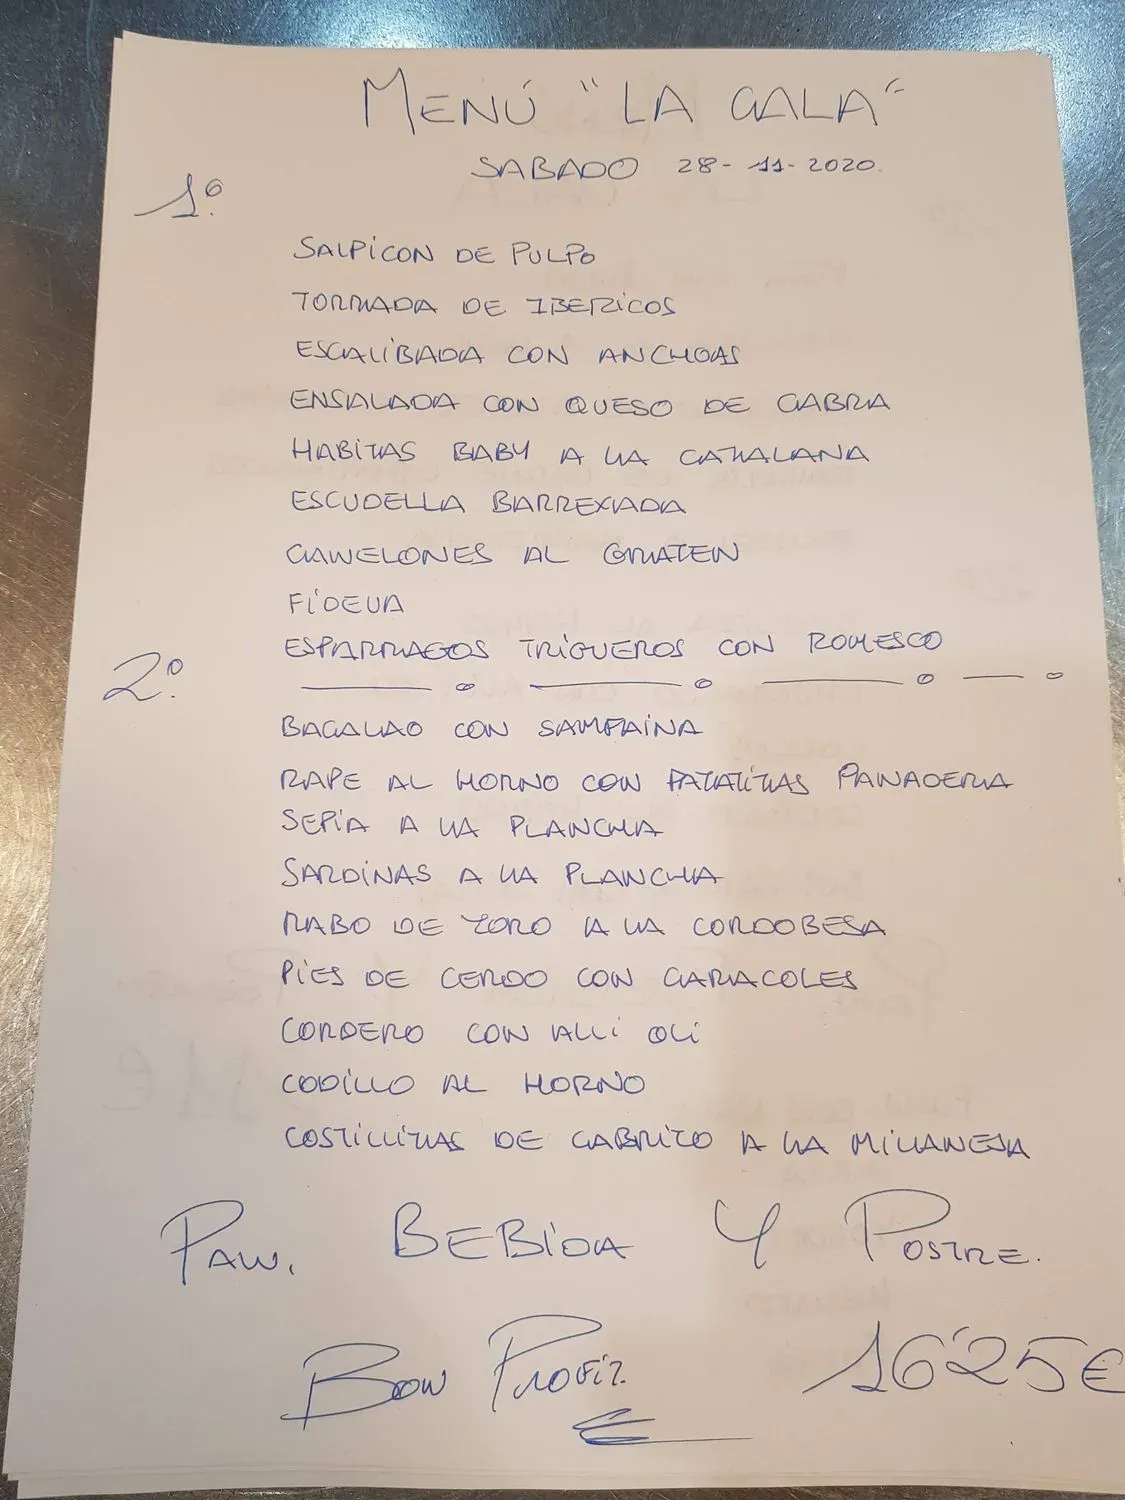 MENÚ "LA GALA"
SABADO 28-11-2020.
1º.
SALPICON DE PULPO
TORRADA DE IBERICOS
ESCALIBADA CON ANCHOAS
ENSALADA CON QUESO DE CABRA
HABITAS BABY A LA CATALANA
ESCUDELLA BARREXADA
CANELONES AL GRATEN
FIDEUA
ESPARRAGOS TRIGUEROS CON ROMESCO
2º.
BACALAO CON SAMFAINA
RAPE AL HORNO CON PATATITAS PANADERA
SEPIA A LA PLANCHA
SARDINAS A LA PLANCHA
RABO DE TORO A LA CORDOBESA
PIES DE CERDO CON CARACOLES
CORDERO CON ALLI OLI
CODILLO AL HORNO
COSTILLITAS DE CABRITO A LA MILANESA
PAN. BEBIDA Y POSTRE.
BON PROFIT. 16'25€